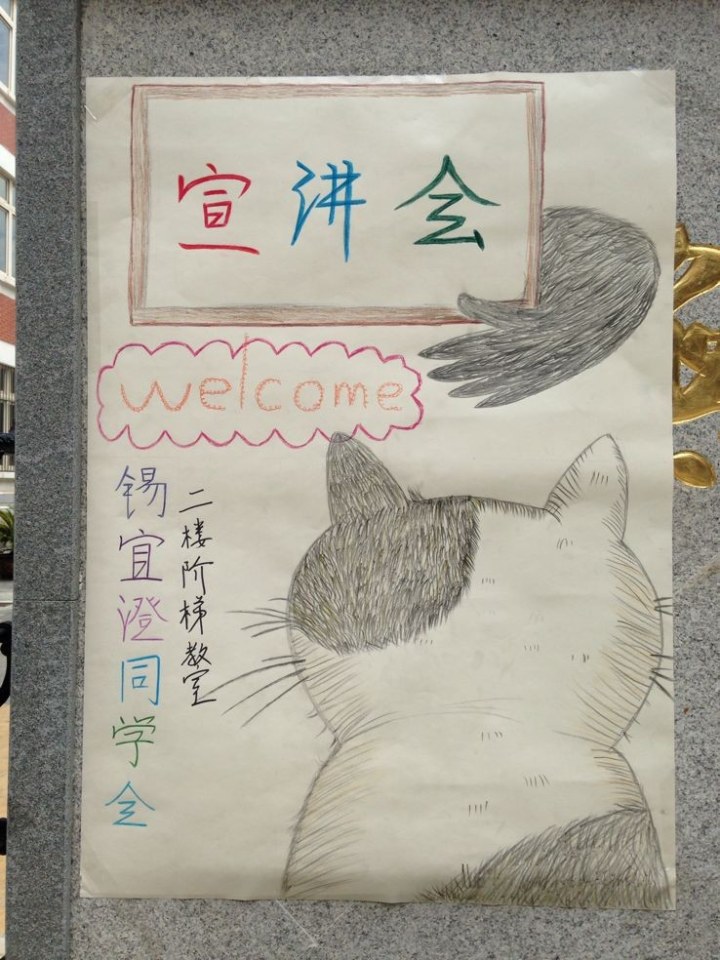 宣讲会
welcome
锡宜澄同学会
二楼阶梯教室